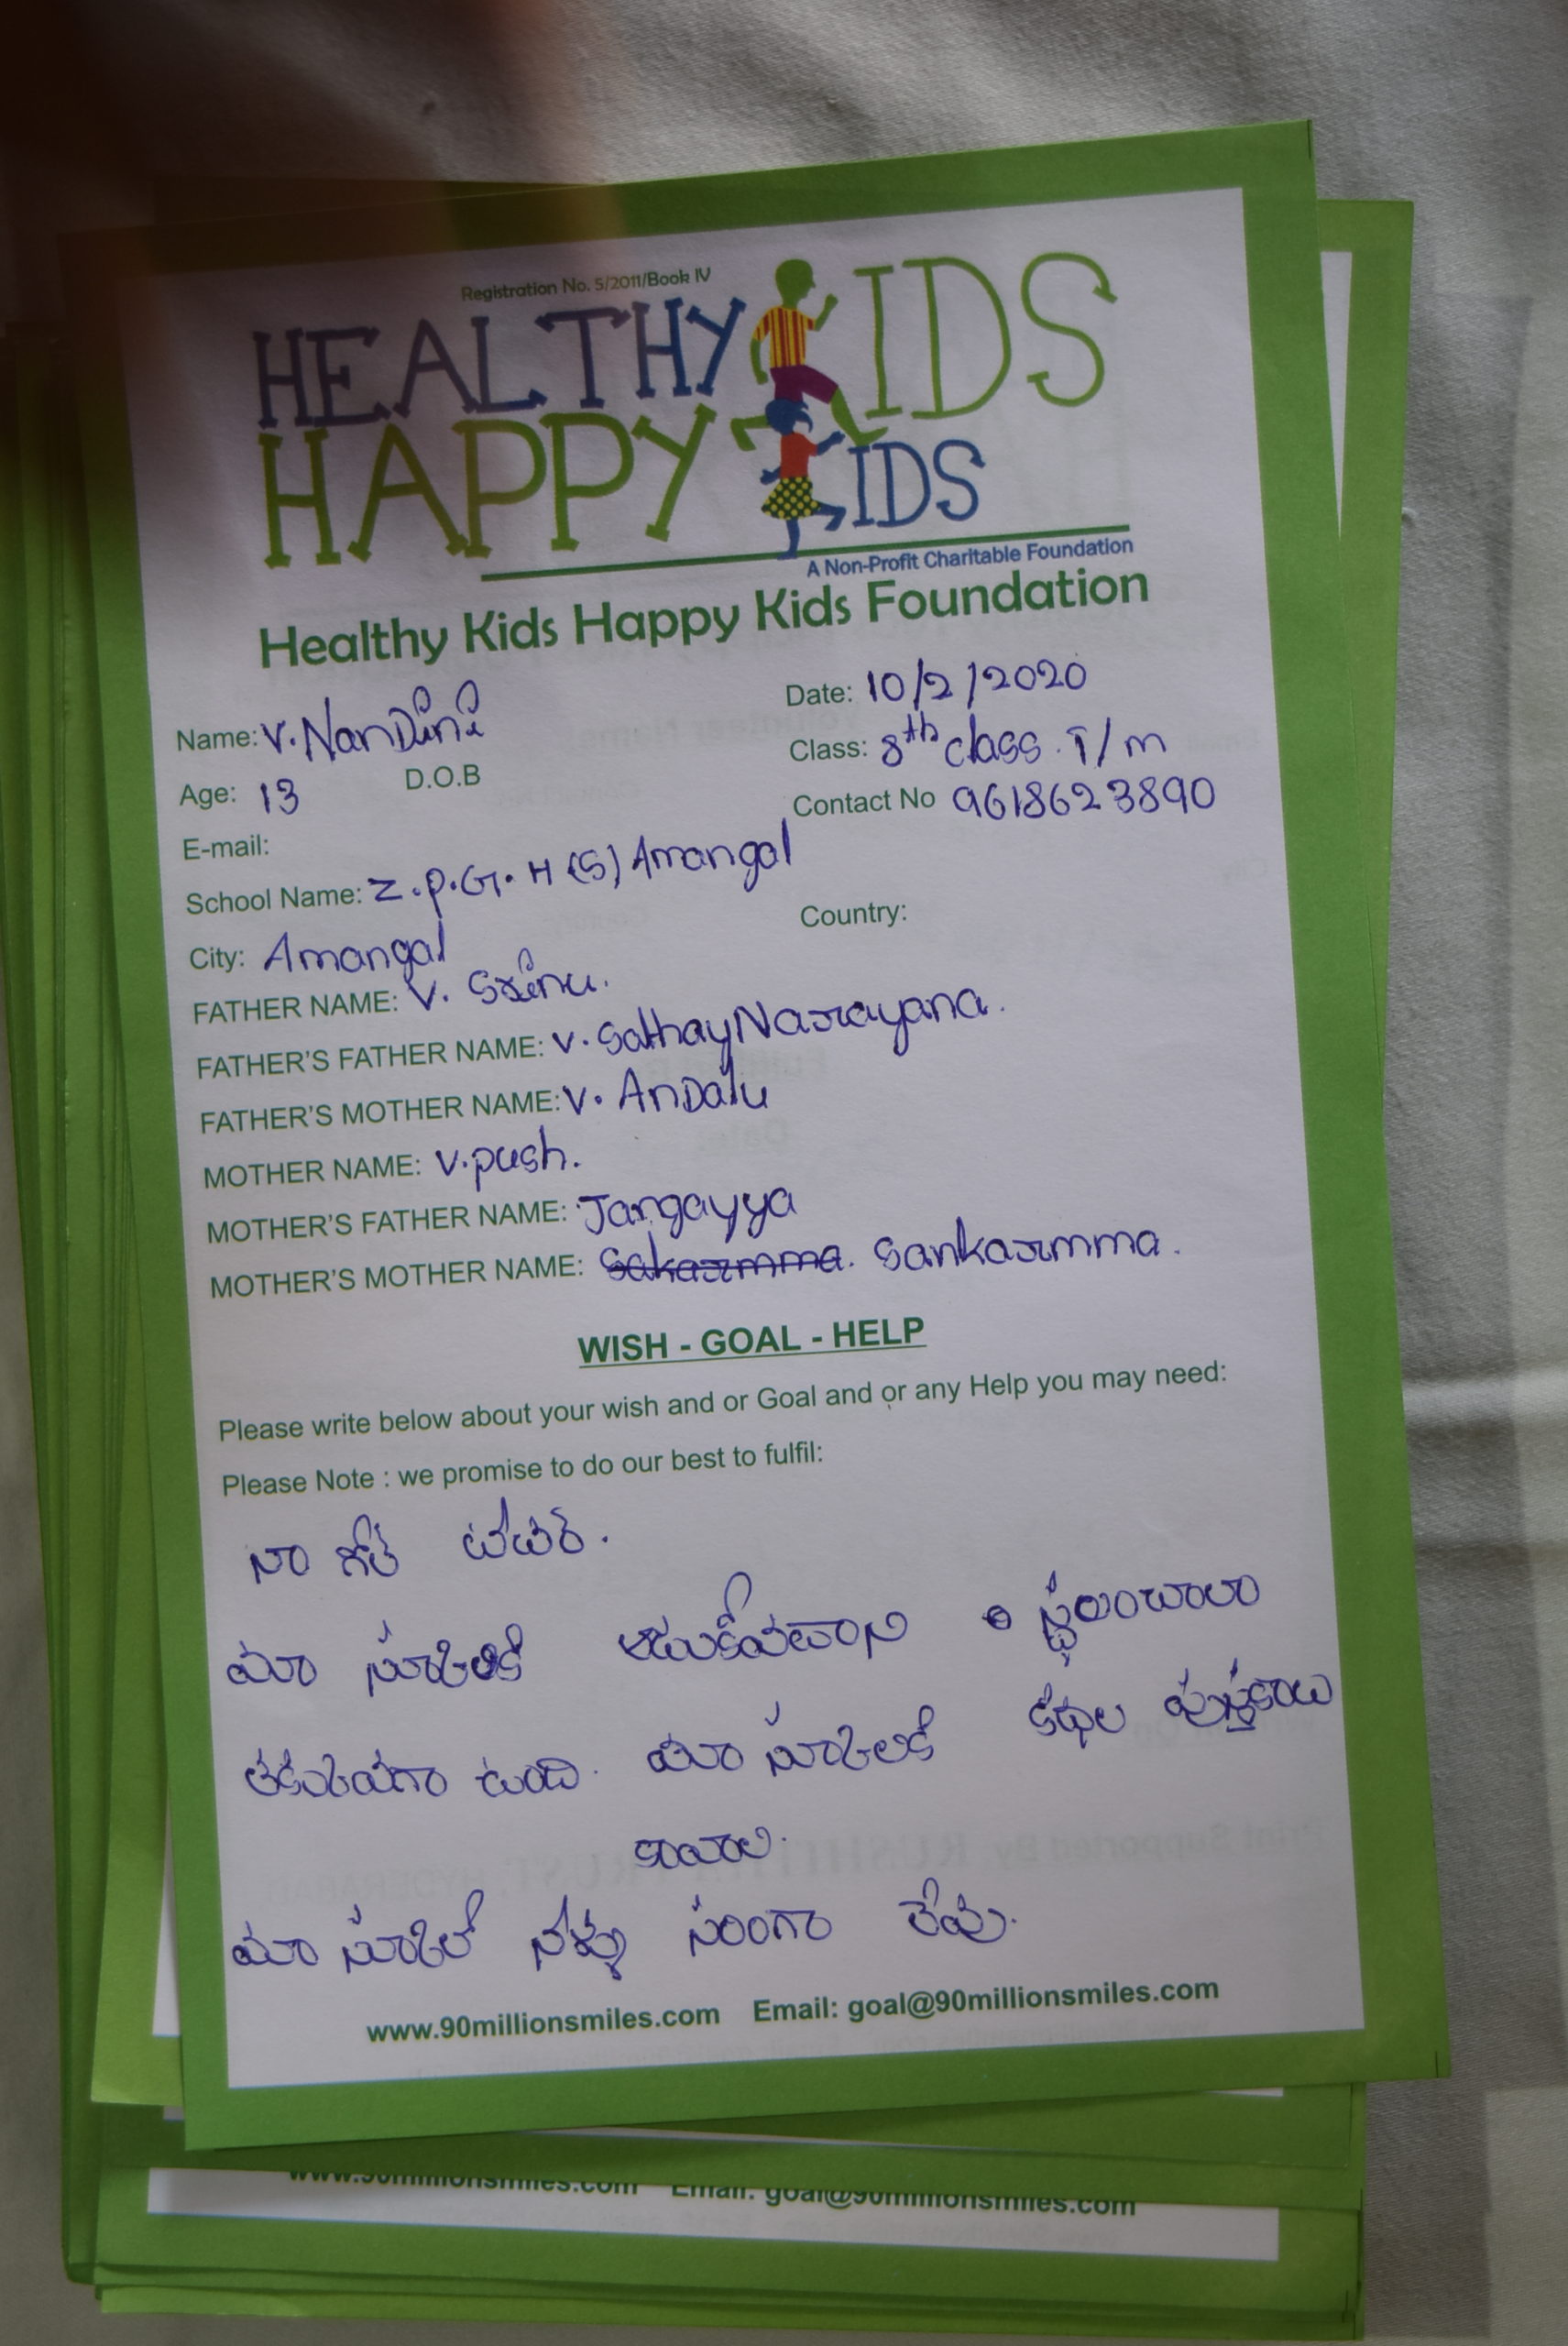 Registration No. 5/2011/Book IV
HEALTHY KIDS
HAPPY KIDS
A Non-Profit Charitable Foundation
Healthy Kids Happy Kids Foundation
Name: V. NanDini Date: 10/2/2020
Age: 13 D.O.B Class: 8th class. T/m
E-mail: Contact No 9618623890
School Name: Z.p.G. H (S) Amangal
City: Amangal Country:
FATHER NAME: V. Srinu.
FATHER'S FATHER NAME: V. SathayNarayana.
FATHER'S MOTHER NAME: V. AnDalu
MOTHER NAME: V.push.
MOTHER'S FATHER NAME: Jangayya
MOTHER'S MOTHER NAME: Sakarmma. Sankarmma.
WISH - GOAL - HELP
Please write below about your wish and or Goal and or any Help you may need:
Please Note : we promise to do our best to fulfil:
నా గోల్ టీచర్.
మా స్కూల్లకి ఆడుకోవడాని స్థలం చాలా
తక్కువగా ఉంది. మా స్కూల్లకి కథల పుస్తకాలు
కావాలి.
మా స్కూల్లో నళ్ళు సరింగా లేవు.
www.90millionsmiles.com Email: goal@90millionsmiles.com
www.90millionsmiles.com Email: goal@90millionsmiles.com